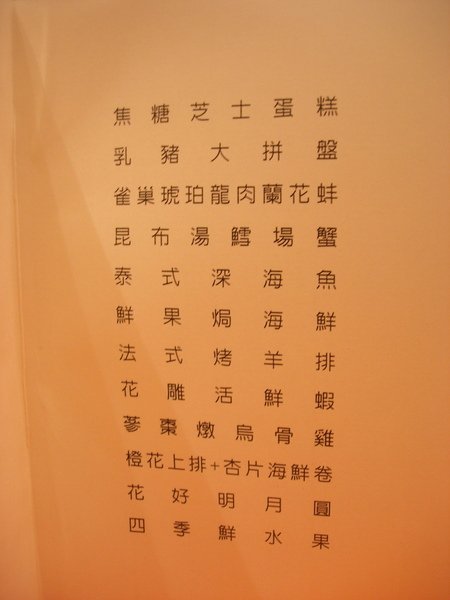 焦糖芝士蛋糕
乳豬大拼盤
雀巢琥珀龍肉蘭花蚌
昆布湯鱈場蟹
泰式深海魚
鮮果焗海鮮
法式烤羊排
花雕活鮮蝦
蔘棗燉烏骨雞
橙花上排+杏片海鮮卷
花好明月圓
四季鮮水果